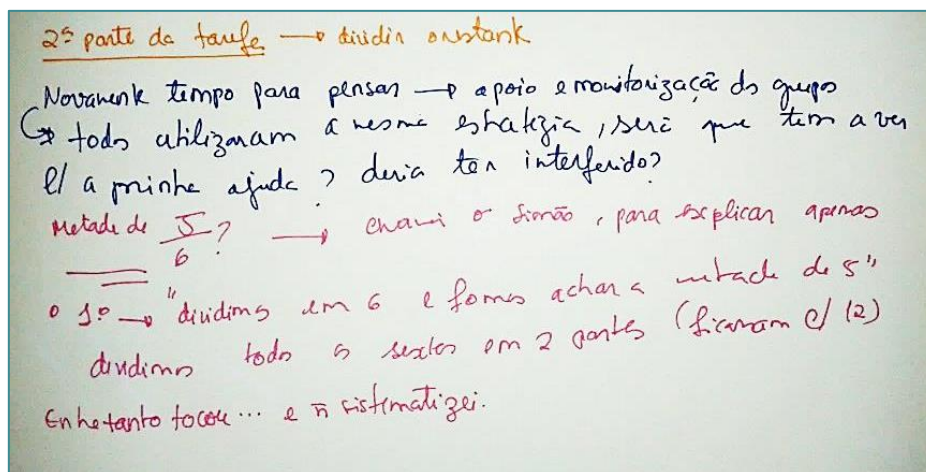 2ª parte da tarefa → dividir o restante
Novamente tempo para pensar → apoio e monitorização do grupo
↳ todos utilizaram a mesma estratégia, será que tem a ver
c/ a minha ajuda? devia ter interferido?
Metade de 5/6? → chamei o Simão, para explicar apenas
o 1º → "dividimos em 6 e fomos achar a metade de 5"
dividimos todos os sextos em 2 partes (ficaram c/ 12)
Entretanto tocou... e ñ sistematizei.